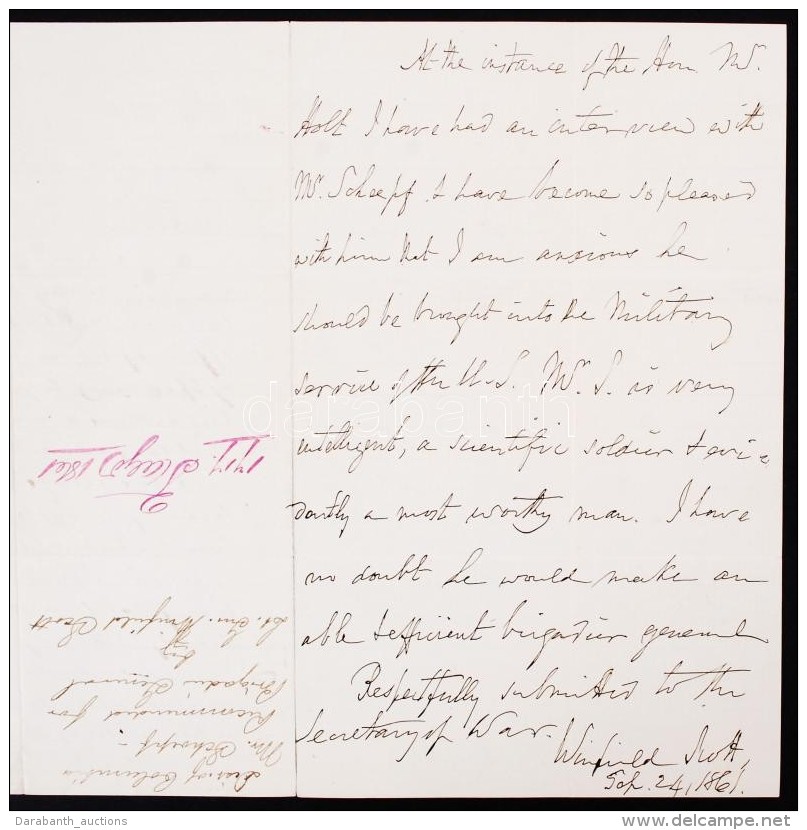 At the instance of the Hon. Mr.
Holt I have had an interview with
Mr. Schoepf & have become so pleased
with him that I am anxious he
should be brought into the Military
service of the U.S. Mr. S. is very
intelligent, a scientific soldier & evi-
dently a most worthy man. I have
no doubt he would make an
able & efficient brigadier general
Respectfully submitted to the
Secretary of War.
Winfield Scott,
Sep. 24, 1861.
Columbia
Mr. Schoepf -
Recommended for
Brigadier General
by
Lt. Gen. Winfield Scott
1861
darabanth
Darabanth_auctions
delcampe.net